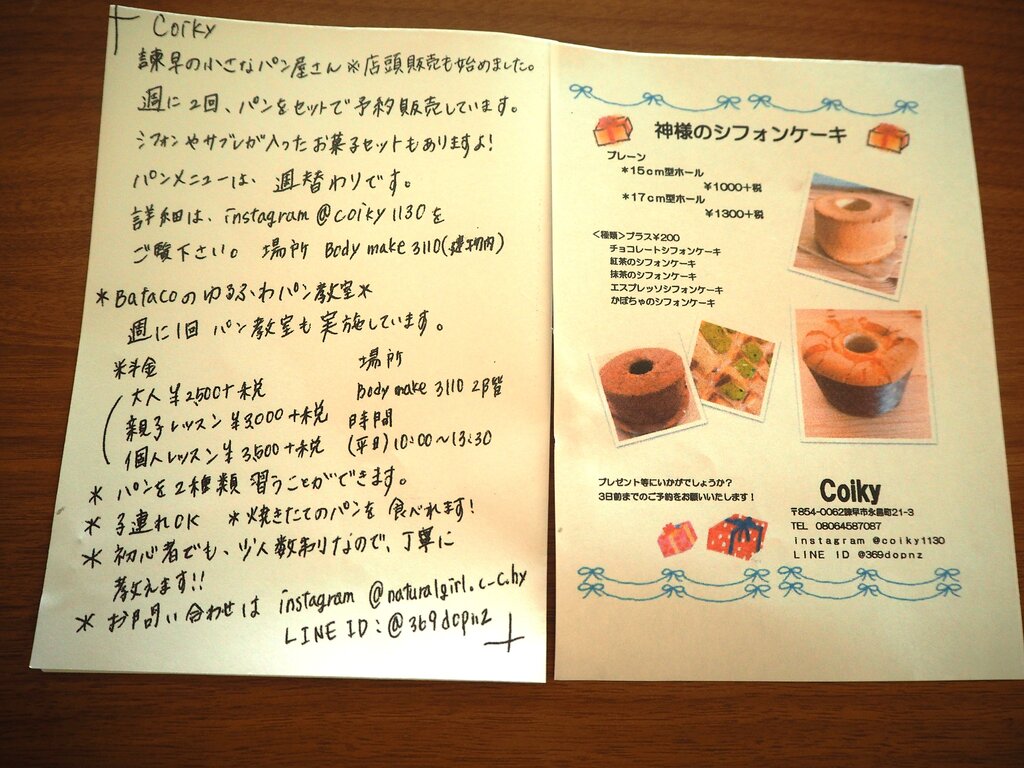 Coiky
諫早の小さなパン屋さん※店頭販売も始めました。
週に2回、パンをセットで予約販売しています。
シフォンやサブレが入ったお菓子セットもありますよ!
パンメニューは、週替わりです。
詳細は、instagram @coiky1130を
ご覧下さい。 場所 Body make 3110
*Batacoのゆるふわパン教室*
週に1回 パン教室も実施しています。
※料金
大人 ¥2500+税
親子レッスン ¥3,000+税
個人レッスン ¥3,500+税
場所
Body make 3110 2F
時間
(平日)10:00~13:30
* パンを2種類 習うことができます。
* 子連れOK *焼きたてのパンを 食べれます!
* 初心者でも、少人数制なので、丁寧に
教えます!!
* お問い合わせは instagram @naturalgirl.c-c.hy
LINE ID:@369dopnz
神様のシフォンケーキ
プレーン
*15cm型ホール
¥1000+税
*17cm型ホール
¥1300+税
<種類>プラス¥200
チョコレートシフォンケーキ
紅茶のシフォンケーキ
抹茶のシフォンケーキ
エスプレッソシフォンケーキ
かぼちゃのシフォンケーキ
プレゼント等にいかがでしょうか?
3日前までのご予約をお願いいたします!
Coiky
〒854-0062諫早市永昌町21-3
TEL 08064587087
instagram @coiky1130
LINE ID @369dopnz